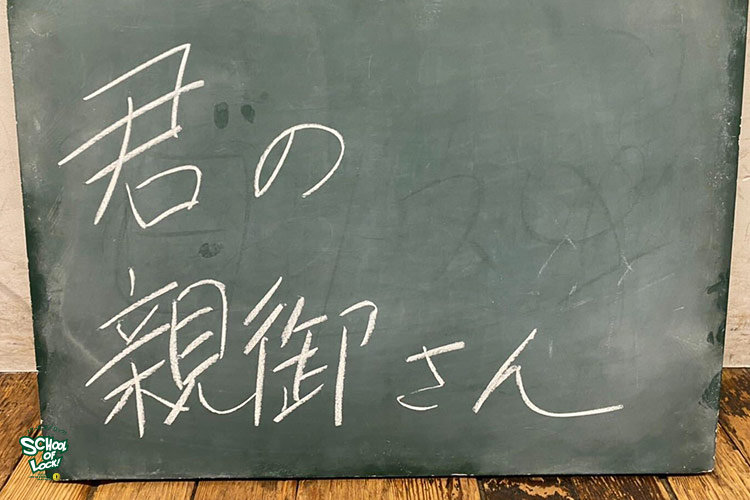 君の
親御さん
SCHOOL
OF
LOCK!